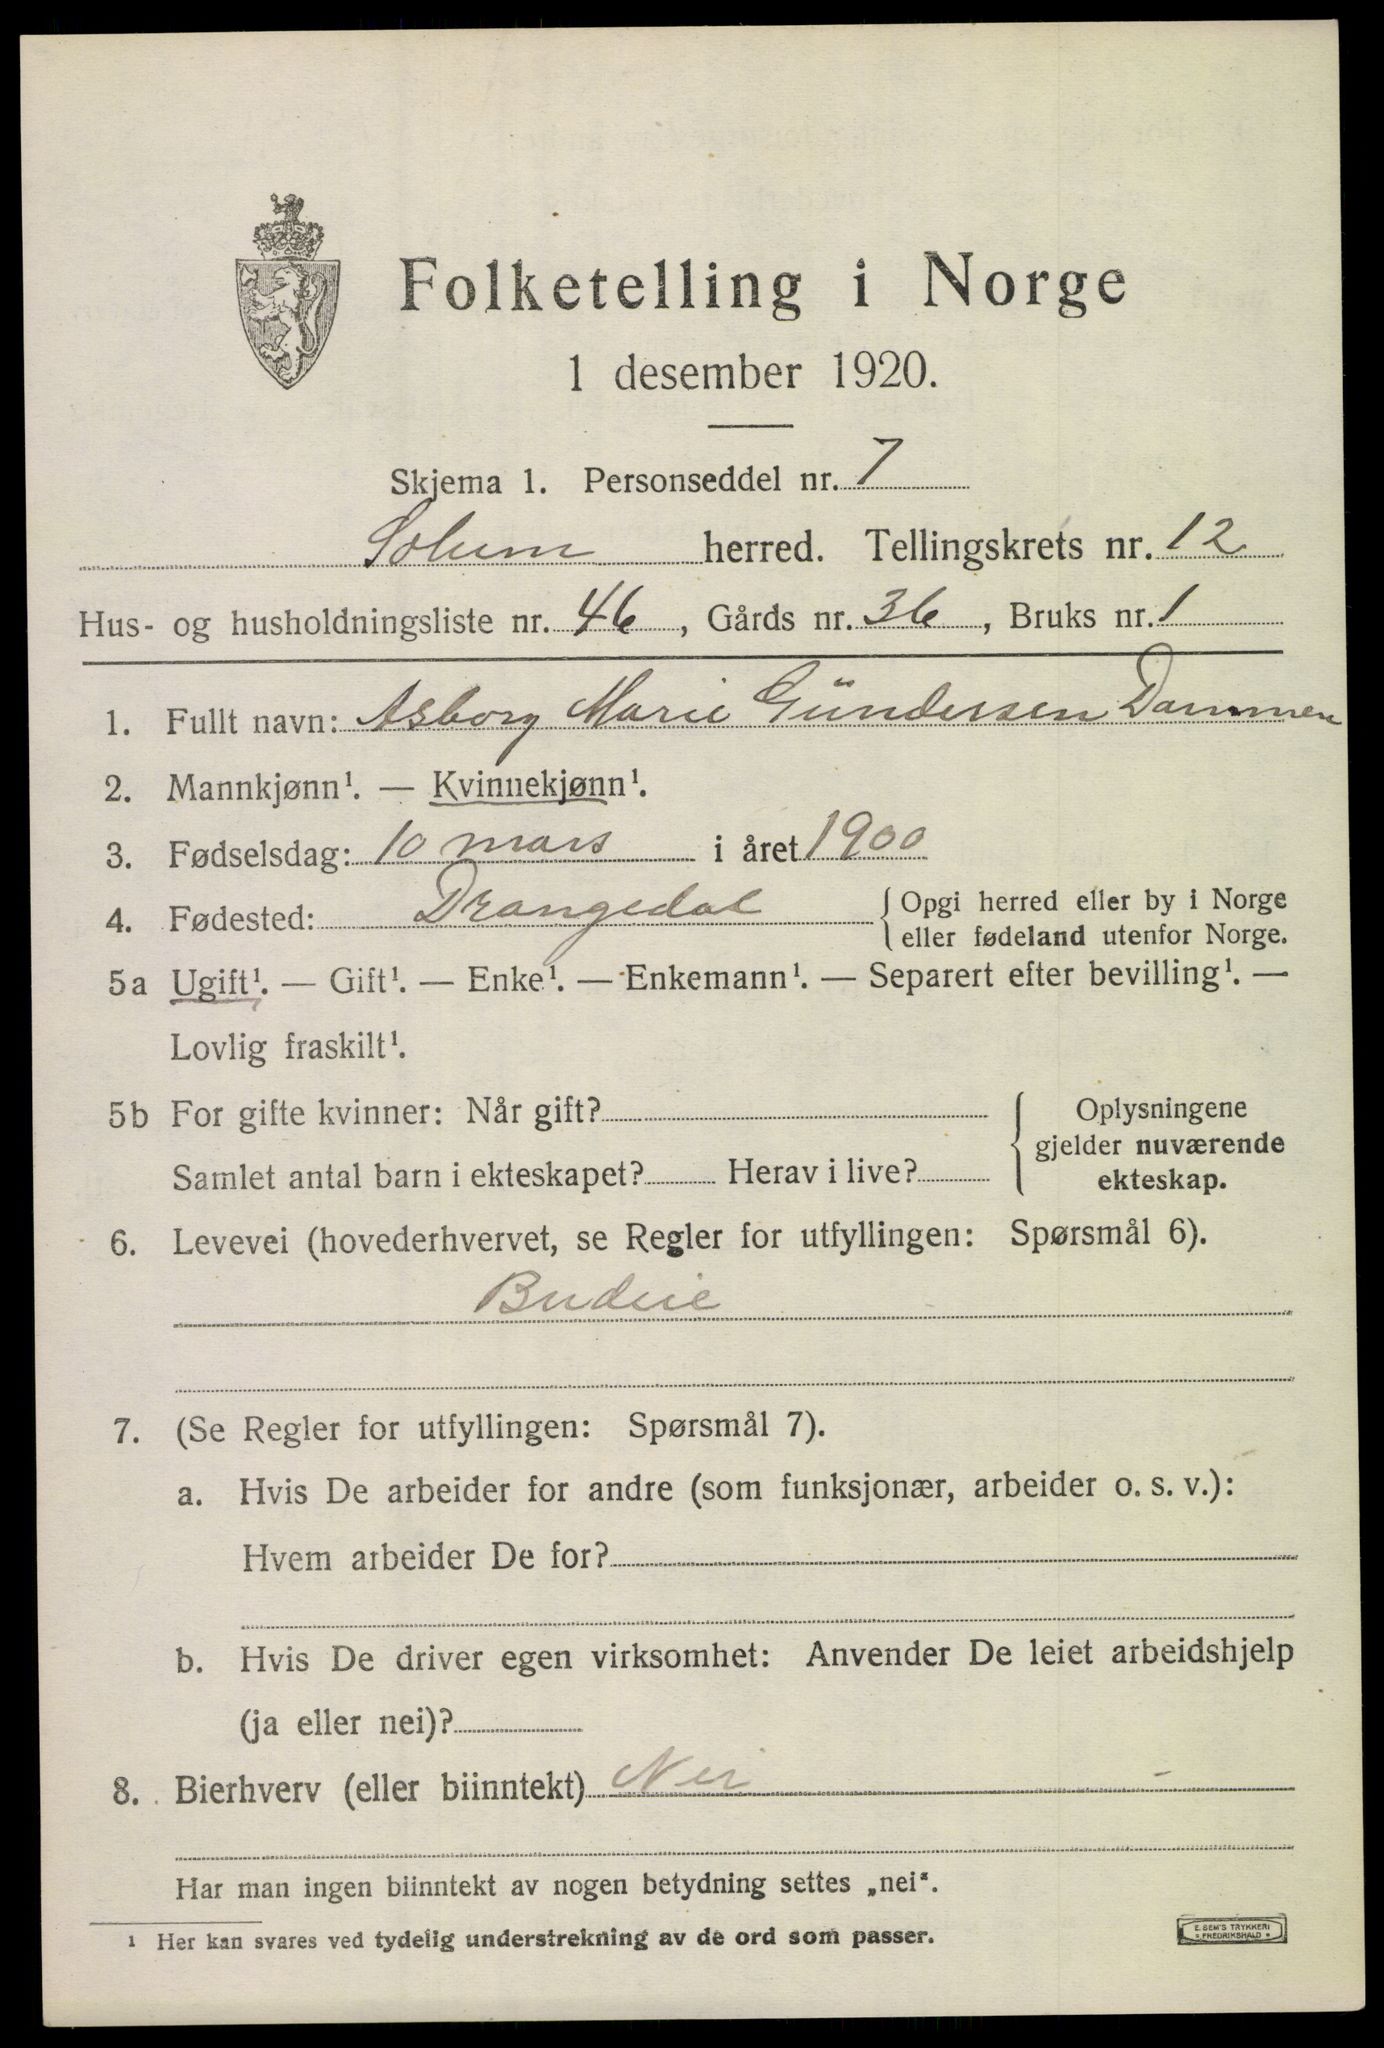 Folketelling i Norge
1 desember 1920.
Skjema 1. Personseddel nr. 7
Solum herred. Tellingskrets nr. 12
Hus- og husholdningsliste nr. 46, Gårds nr. 36, Bruks nr. 1
1. Fullt navn: Asborg Marie Gündersen Dammen
2. Mannkjønn¹. — Kvinnekjønn¹.
3. Fødselsdag: 10 mars i året 1900
4. Fødested: Drangedal { Opgi herred eller by i Norge
eller fødeland utenfor Norge.
5a Ugift¹. — Gift¹. — Enke¹. — Enkemann¹. — Separert efter bevilling¹. —
Lovlig fraskilt¹.
5b For gifte kvinner: Når gift? { Oplysningene
gjelder nuværende
Samlet antal barn i ekteskapet? Herav i live? ekteskap.
6. Levevei (hovederhvervet, se Regler for utfyllingen: Spørsmål 6).
Budeie
7. (Se Regler for utfyllingen: Spørsmål 7).
a. Hvis De arbeider for andre (som funksjonær, arbeider o. s. v.):
Hvem arbeider De for?
b. Hvis De driver egen virksomhet: Anvender De leiet arbeidshjelp
(ja eller nei)?
8. Bierhverv (eller biinntekt) Nei –
Har man ingen biinntekt av nogen betydning settes „nei“.
¹ Her kan svares ved tydelig understrekning av de ord som passer.
E. SEM'S TRYKKERI
FREDRIKSHALD